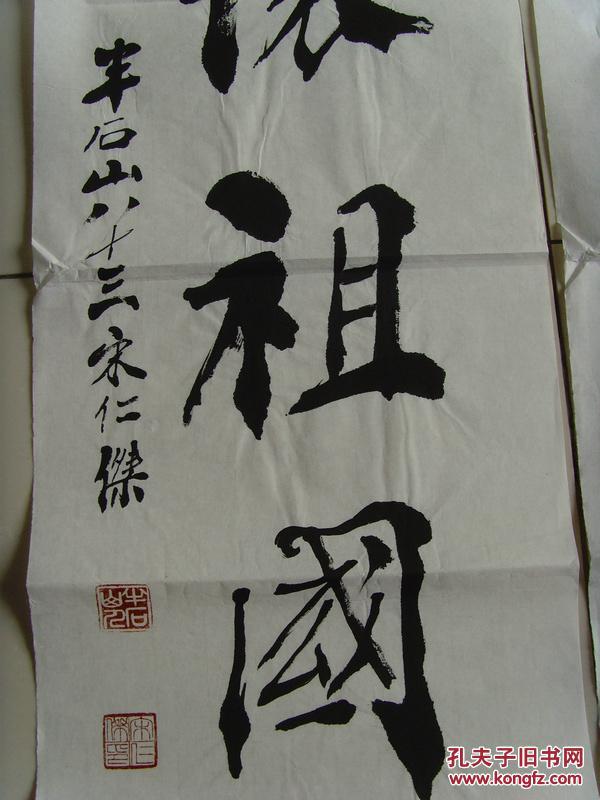 祖國
半石山八十三宋仁傑
宋仁傑印
孔夫子旧书网
www.kongfz.com